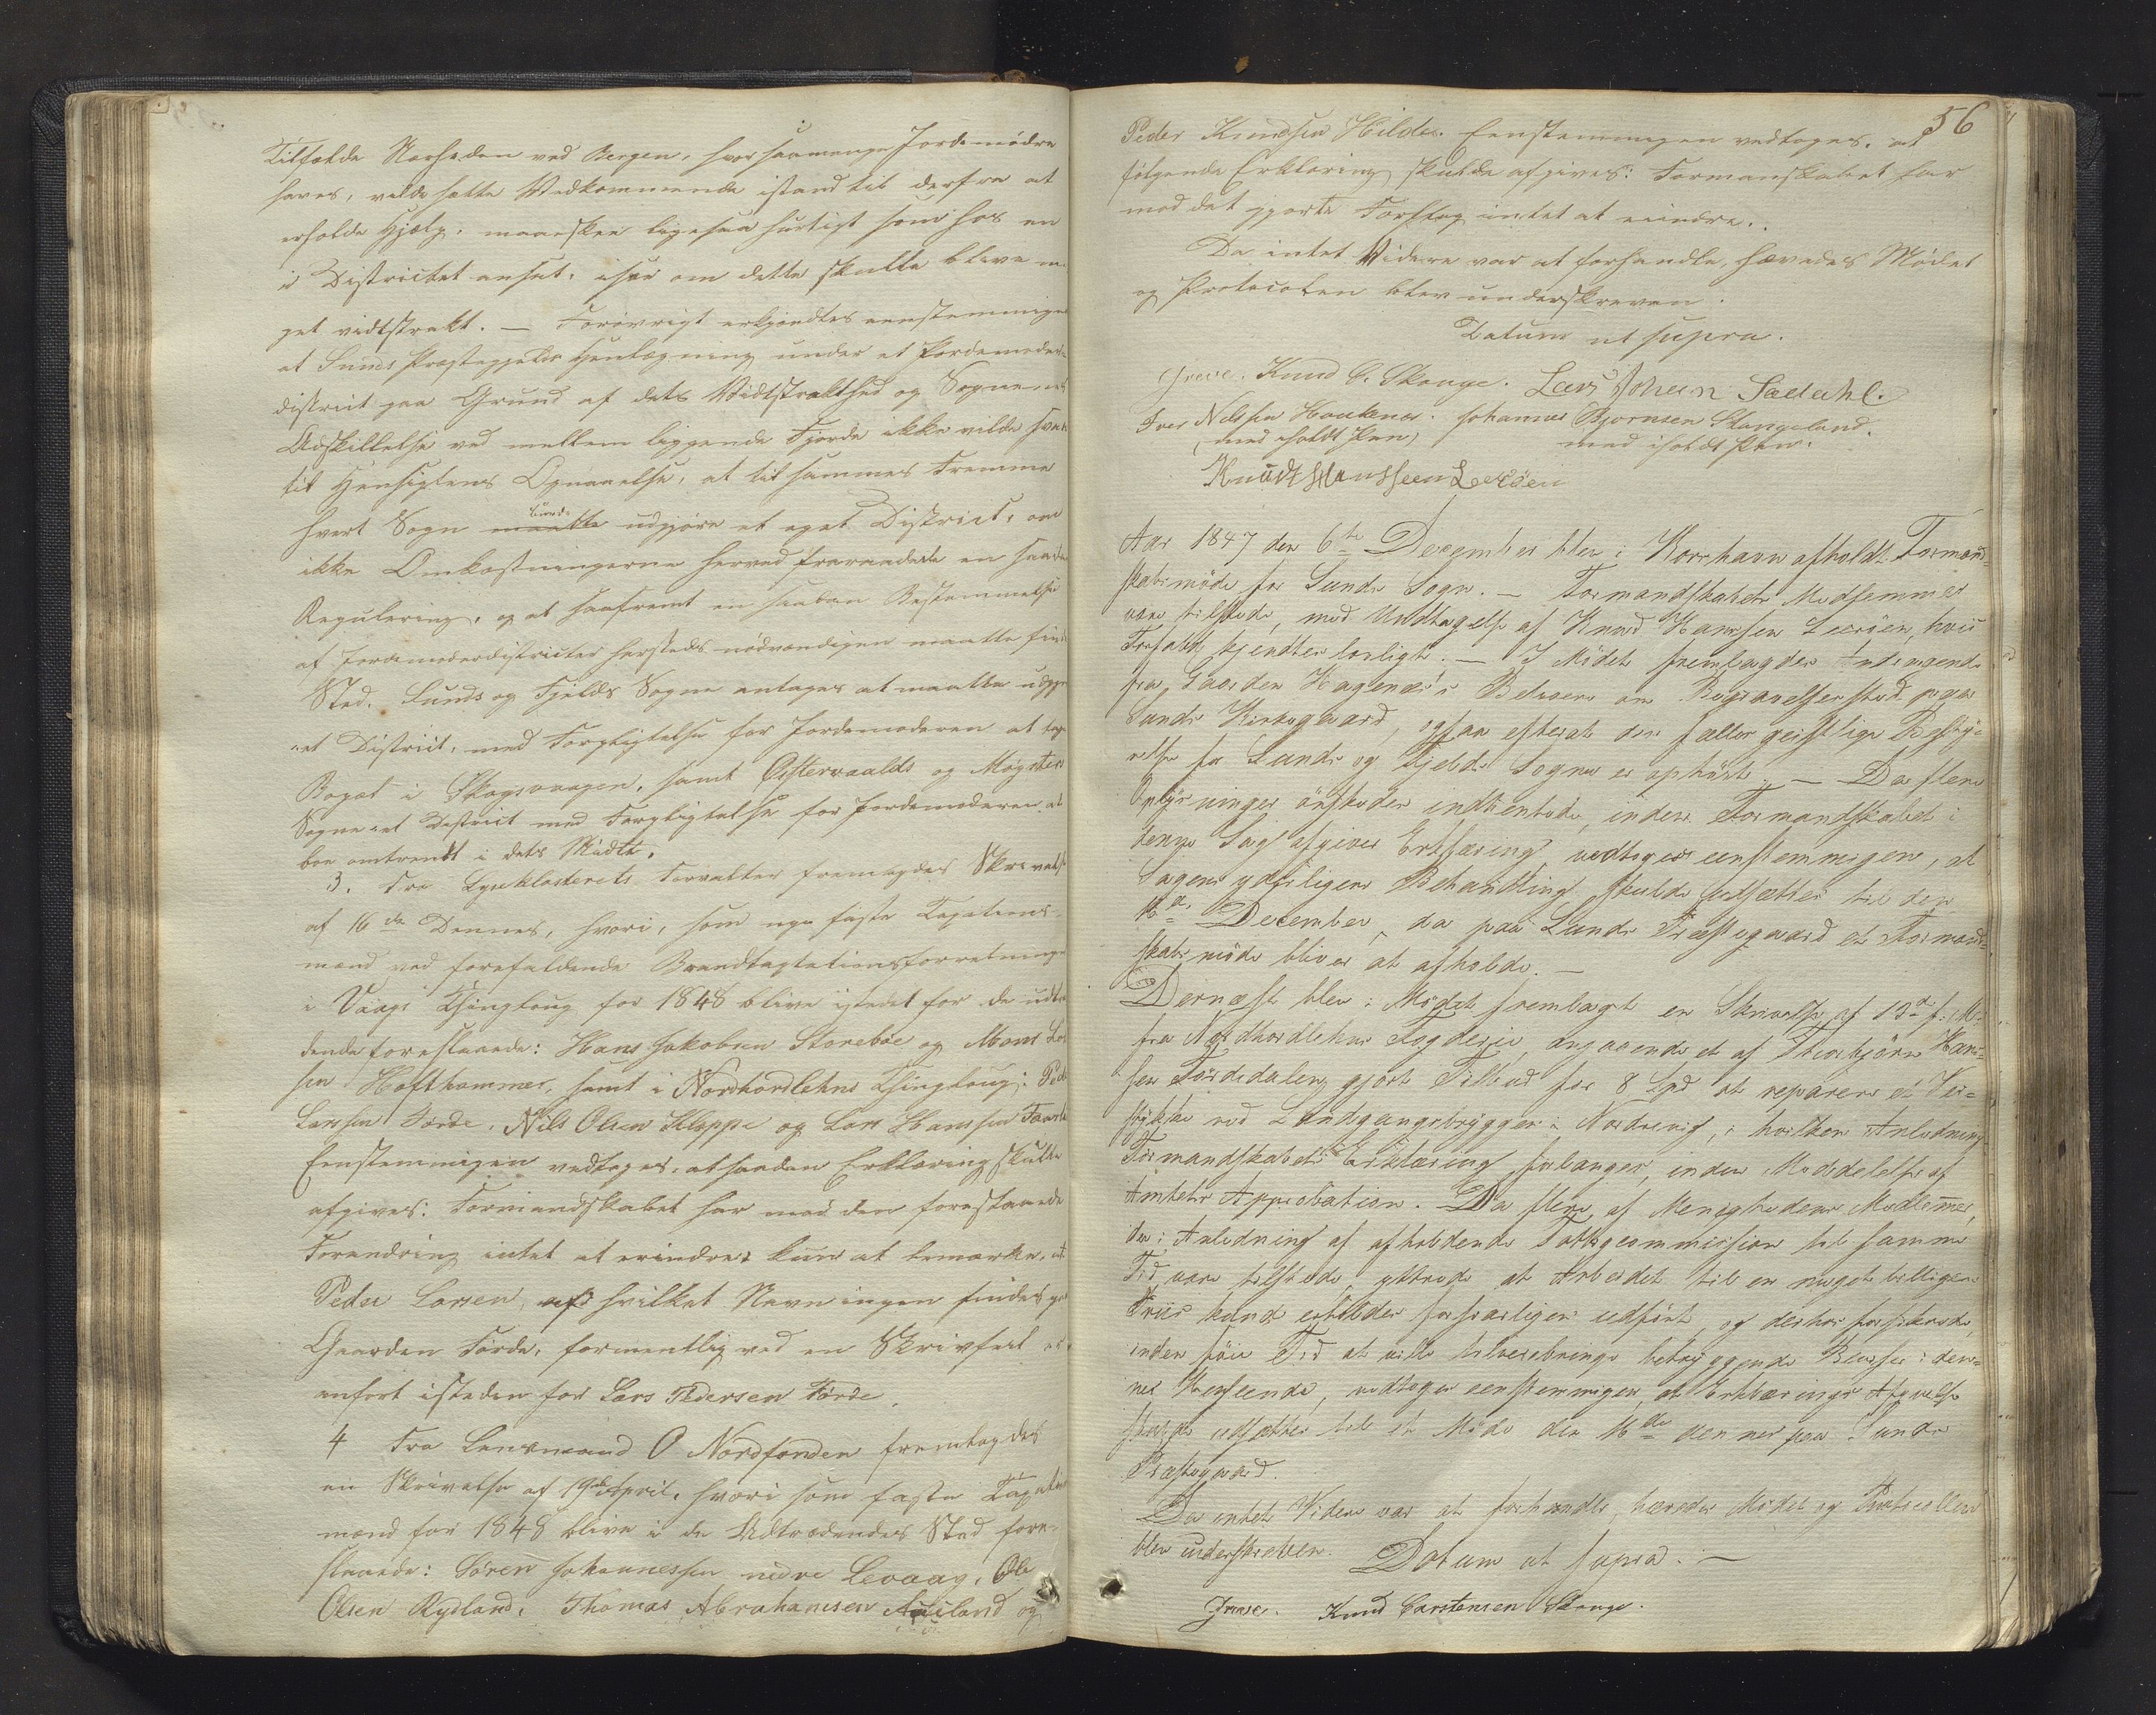 Tilfælde Nærheden ved Bergen, hvor saamange Jordemødre
haves, vilde sætte Vedkommende istand til derfra at
erholde Hjælp, maaskee ligesaa hurtigt som hos en
i Districtet ansat, især om dette skulde blive me
get vidtstrakt. — Forøvrigt erkjendtes eenstemmigen
at Sunds Præstegjelds Henlægning under et Jordemoder-
district paa Grund af dets Vidtstrakthed og Sognenes
Adskillelse ved mellem liggende Fjorde ikke vilde svare
til Hensigtens Opnaaelse, at til sammes Fremme
hvert Sogn maatte burde udgjøre et eget District, om
ikke Omkostningerne herved fraraadede en saadan
Regulering, og at saafremt en saadan Bestemmelse
af Jordemoderdistricter hersteds nødvendigen maatte finde
Sted, Sunds og Fjelds Sogne antages at maatte udgjøre
et District, med Forpligtelse for Jordemoderen at tage
Bopæl i Skogsvaagen, samt Østervaalds og Møgsters
Sogne et District med Forpligtelse for Jordemoderen at
boe omtrendt i dets Midte.
3. Fra Lyseklosterets Forvalter fremlagdes Skrivelse
af 16de Dennes, hvori, som nye faste Taxations-
mænd ved forefaldende Brandtaxtationsforretninger
i Vaags Thinglaug for 1848 blive istedet for de udtræ
dende foreslaaede: Hans Jakobsen Storebøe og Mons Lar
sen Hofthammer, samt i Nordhordlehns Thinglaug: Peder
Larssen Førde, Nils Olsen Kleppe og Lars Hanssen
Eenstemmigen vedtoges, at saadan Erklæring skulde
afgives: Formandskabet har mod den foreslaaede
Forandring intet at erindre, kun at bemærke, at
Peder Larsen, af hvilket Navn ingen findes paa
Gaarden Førde, formentlig ved en Skrivfeil er
anført isteden for Lars Pedersen Førde.
4 Fra Lensmand O Nordfonden fremlagdes
en Skrivelse af 19de April, hvori som faste Taxations
mænd for 1848 blive i de Udtrædendes Sted fore-
slaaede: Søren Johannessen nedre Levaag, Ole
Olsen Rydland, Thomas Abrahamsen og
56
Peder Knudsen Hilder. Eenstemmigen vedtoges, at
følgende Erklæring skulde afgives: Formandskabet har
mod det gjorte Forslag intet at erindre.
Da intet Videre var at forhandle, hævedes Mødet
og Protocollen blev underskreven.
Datum ut supra.
Greve. Knud C. Skouge. Lars Johan Sædahl.
Iver Nilssen Haakenes. Johannes Bjørnsen Stangeland.
med iholdt Pen, med iholdt Pen.
Knudt Hansseen Leerøen
Aar 1847 den 6te December blev i Korshavn afholdt Formand-
skabsmøde for Sunds Sogn. — Formandskabets Medlemmer
vare tilstede, med Undtagelse af Knud Hanssen Leerøen, hvis
Forfald kjendtes lovligt. — I Mødet fremlagdes Andragende
fra Gaarden Hagenæs's Beboere om Begravelsessted paa
Sunds Kirkegaard, ogsaa efterat den fælles geistlige Besty-
relse for Sunds og Fjelds Sogne er ophørt. — Da flere
Oplysninger ønskedes indhentede, inden Formandskabet i
denne Sag afgiver Erklæring, vedtoges eenstemmigen, at
Sagens yderligere Behandling skulde udsættes til den
16de December, da paa Sunds Præstegaard et Formand-
skabsmøde bliver at afholde. —
Dernæst blev i Mødet fremlagt en Skrivelse af 13de f. M.
fra Nordhordlehns Fogderie, angaaende et af Thorbjørn Han-
sen Førdedalen gjort Tilbud for 8 Spd at reparere et Vei-
stykke ved Landgangsbryggen i Nordrevig, i hvilken Anledning
Formandskabets Erklæring forlanges, inden Meddelelse af
Amtets Approbation. Da flere af Menighedens Medlemmer,
der i Anledning af afholdende Fattigcommission til samme
Tid vare tilstede, yttrede at Arbeidet til en noget billigere
Priis kunde erholdes forsvarligen udført, og derhos forsikrede,
inden føie Tid at ville tilveiebringe betryggende Beviser i den-
nes Henseende, vedtoges eenstemmigen, at Erklærings Afgivelse
skulde udsættes til et Møde den 16de dennes paa Sunds
Præstegaard.
Da intet Videre var at forhandle, hævedes Mødet og Protocollen
blev underskreven. Datum ut supra. —
Greve. Knud Carstensen Skouge.